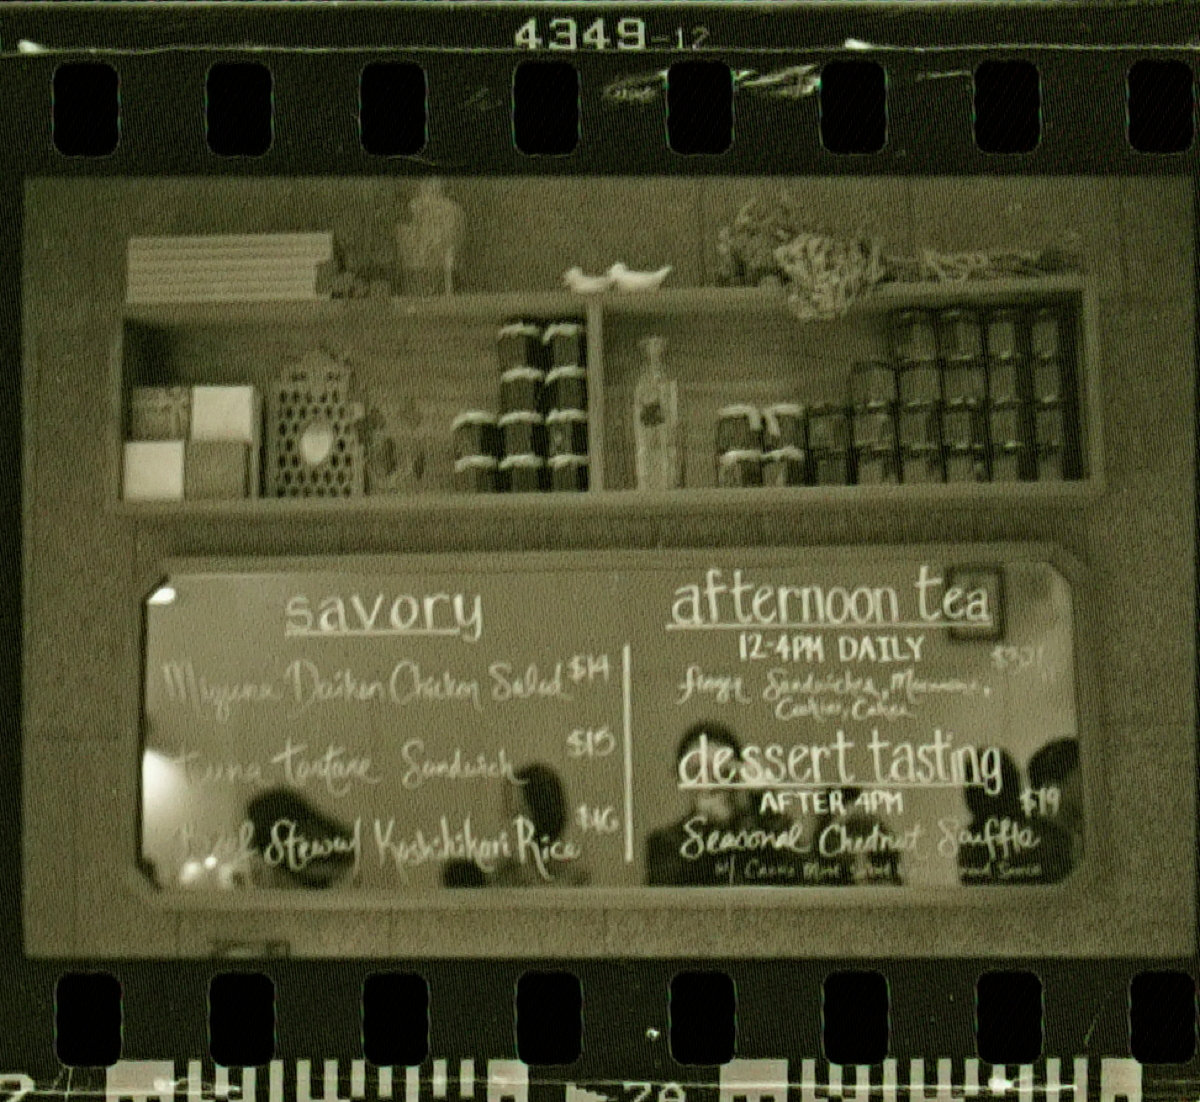 4349-12
savory
Daikon Chicken Salad $14
Tuna Tartare Sandwich $15
Stewed Koshihikari Rice $16
afternoon tea
12-4PM DAILY
Sandwiches,
Cookies, Cakes
dessert tasting
AFTER 4PM
$19
Seasonal Chestnut Souffle
w/